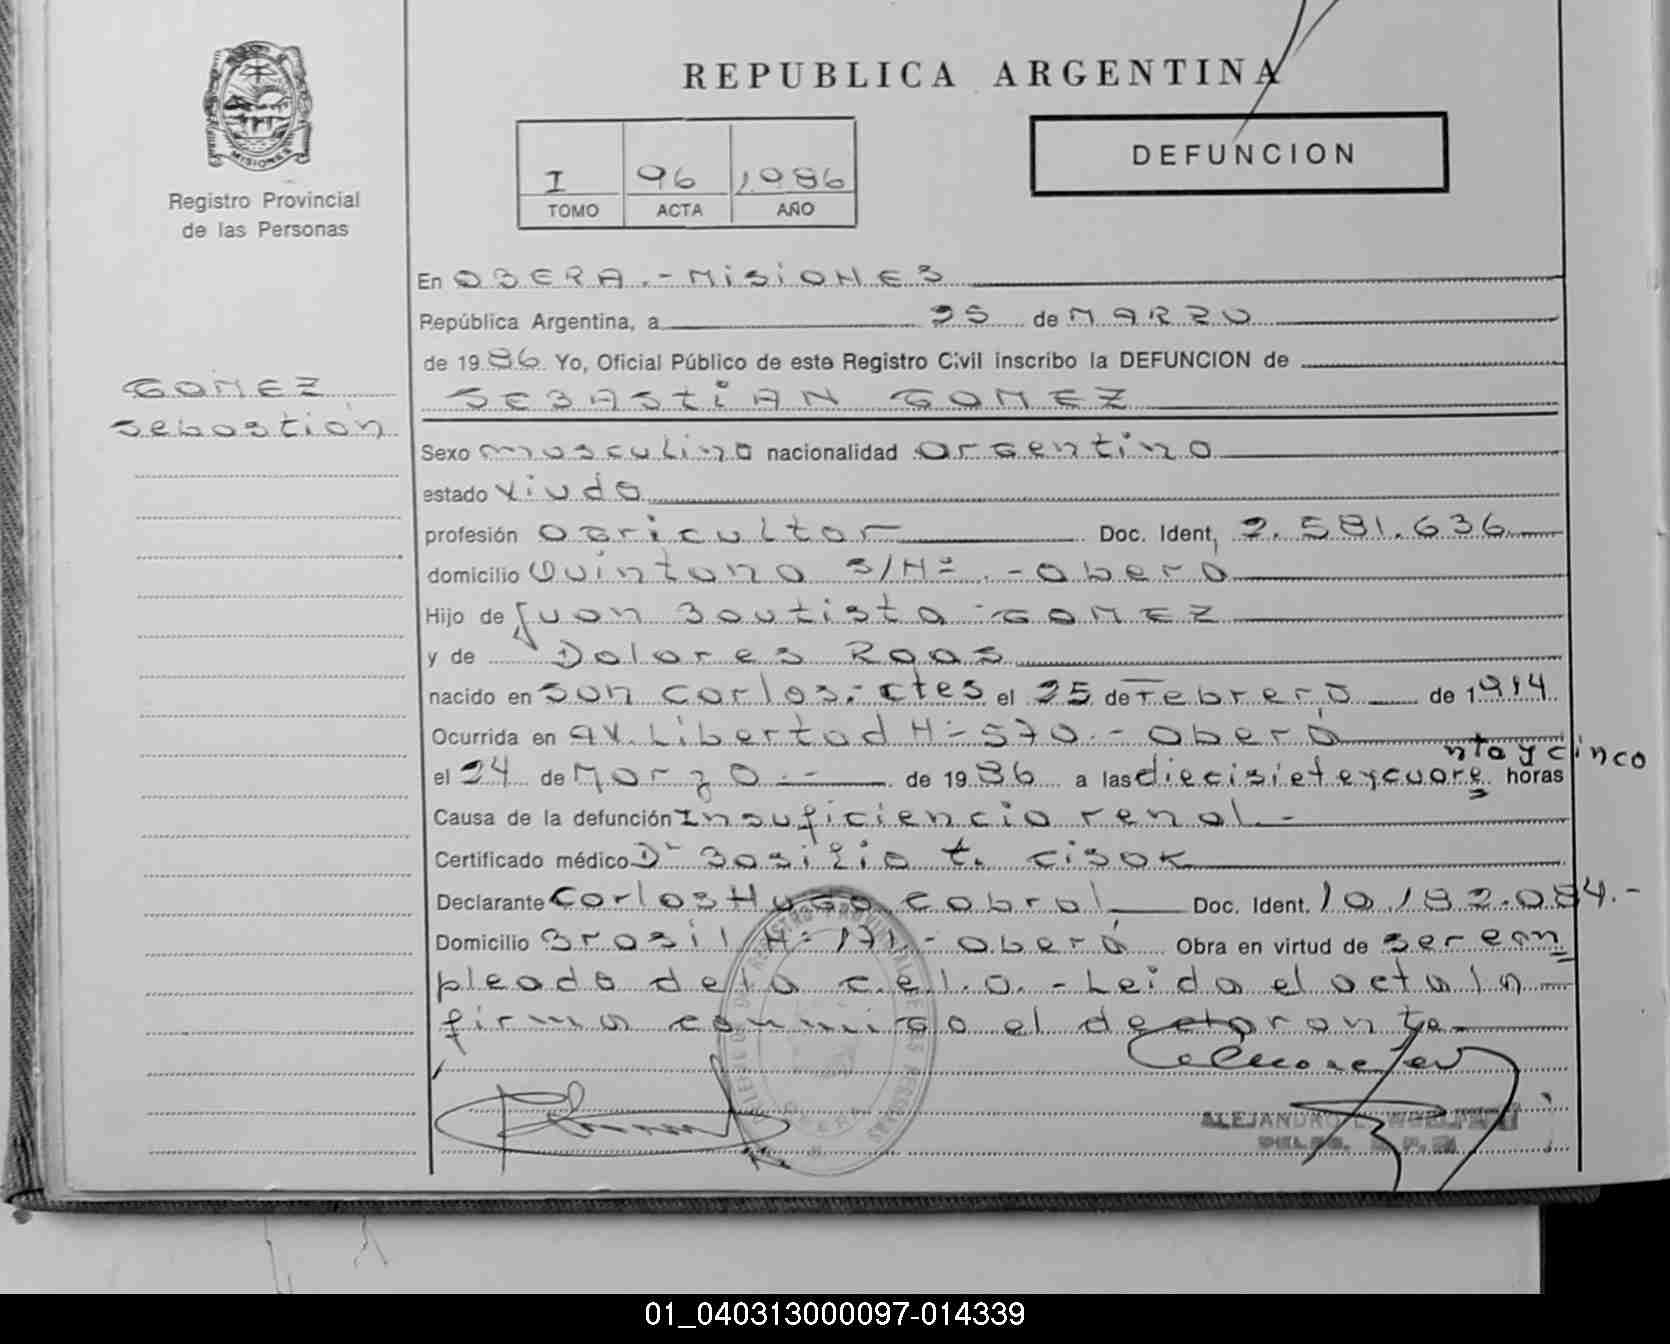 REPUBLICA ARGENTINA
MISIONES
Registro Provincial
de las Personas
I 96 1986
TOMO ACTA AÑO
DEFUNCION
GOMEZ
Sebastián
En OBERA.-MISIONES
República Argentina, a 25 de MARZO
de 1986 Yo, Oficial Público de este Registro Civil inscribo la DEFUNCION de
SEBASTIAN GOMEZ
Sexo masculino nacionalidad argentino
estado viudo
profesión agricultor Doc. Ident, 2.581.636
domicilio Quintana S/Nº.-Oberá
Hijo de Juan Bautista GOMEZ
y de Dolores Roas
nacido en San Carlos.-Ctes el 25 de Febrero de 1914
Ocurrida en av. Libertad Nº 570.-Oberá
el 24 de Marzo.- de 1986 a las diecisiete y cuare horas
nta y cinco
Causa de la defunción Insuficiencia renal.-
Certificado médico Dr Basilio t. Cisak
Declarante Carlos Hugo Cabral Doc. Ident. 10.182.084.-
Domicilio Brasil Nº 171.-Oberá Obra en virtud de ser em
pleado de la c.e.l.o.-Leida el acta la
firma conmigo el declarante.-
ALEJANDRO
01_040313000097-014339